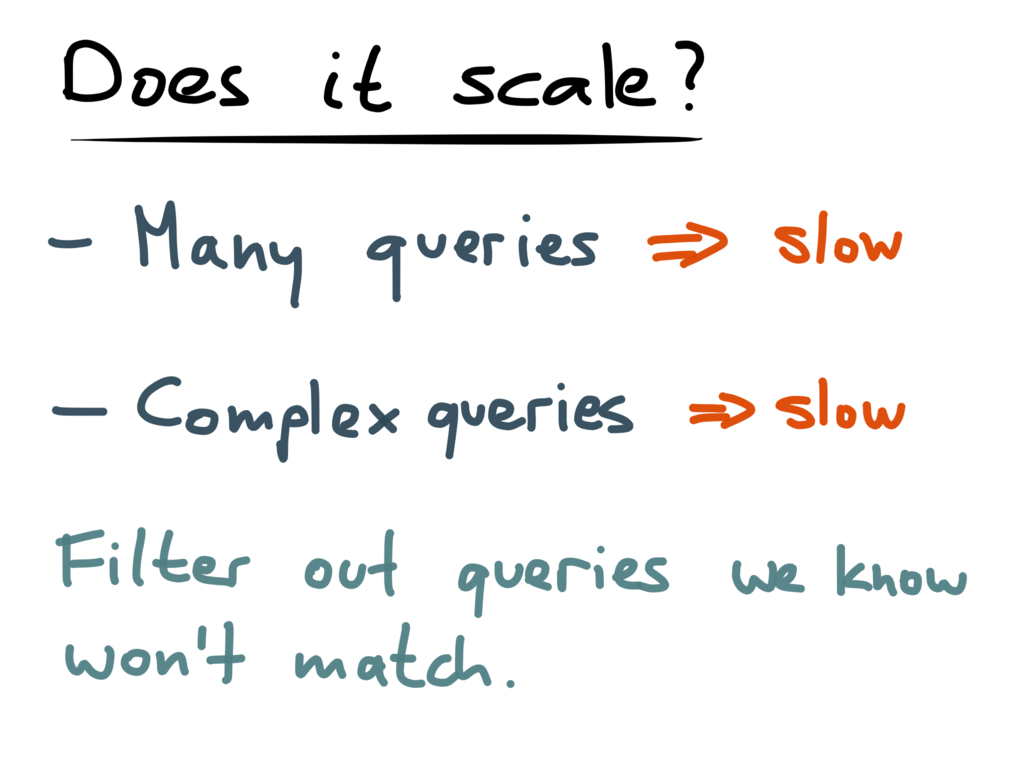 Does it scale?
- Many queries ⇒ slow
- Complex queries ⇒ slow
Filter out queries we know
won't match.